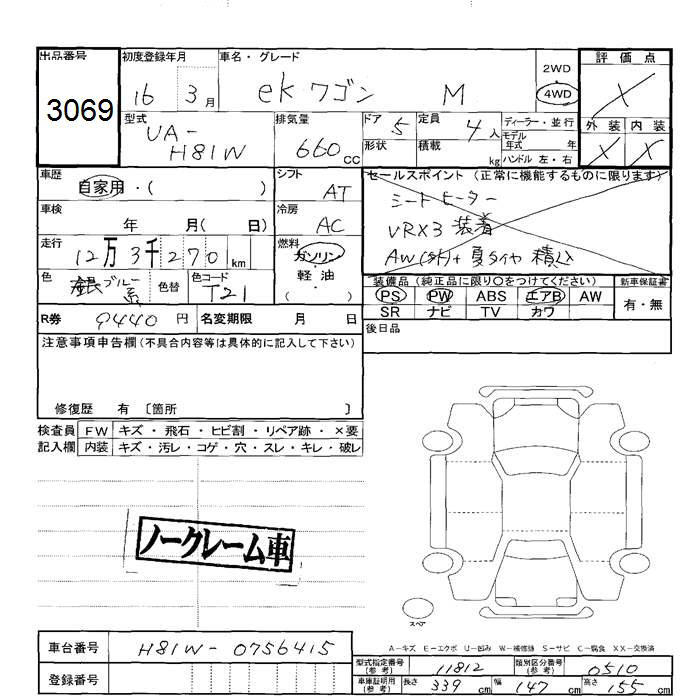 出品番号 初度登録年月 車名・グレード 2WD 評価点
3069 16 3月 ekワゴン M 4WD X
型式 排気量 ドア 定員 ディーラー・並行 外装 内装
UA-H81W 660cc 5 4人 モデル年式 年 X X
形状 積載 kg ハンドル 左・右
車歴 自家用・( ) シフト AT セールスポイント (正常に機能するものに限ります)
シートヒーター
車検 年 月( 日) 冷房 AC VRX3 装着
走行 12万3千270km 燃料 ガソリン AW(外)+夏タイヤ 積込
軽油
( )
色 銀ブルー系 色替 色コード T21 装備品(純正品に限り○をつけてください) 新車保証書
PS PW ABS エアB AW 有・無
R券 9440円 名変期限 月 日 SR ナビ TV カワ
後日品
注意事項申告欄(不具合内容等は具体的に記入して下さい)
修復歴 有 〔箇所 〕
検査員 FW キズ・飛石・ヒビ割・リペア跡・×要
記入欄 内装 キズ・汚レ・コゲ・穴・スレ・キレ・破レ
ノークレーム車
スペア
A-キズ E-エクボ U-凹み W-補修跡 S-サビ C-腐食 XX-交換済
車台番号 H81W-0756415
型式指定番号(参考) 11812 類別区分番号(参考) 0510
登録番号 車庫証明用(参考) 長さ 339cm 幅 147cm 高さ 155cm